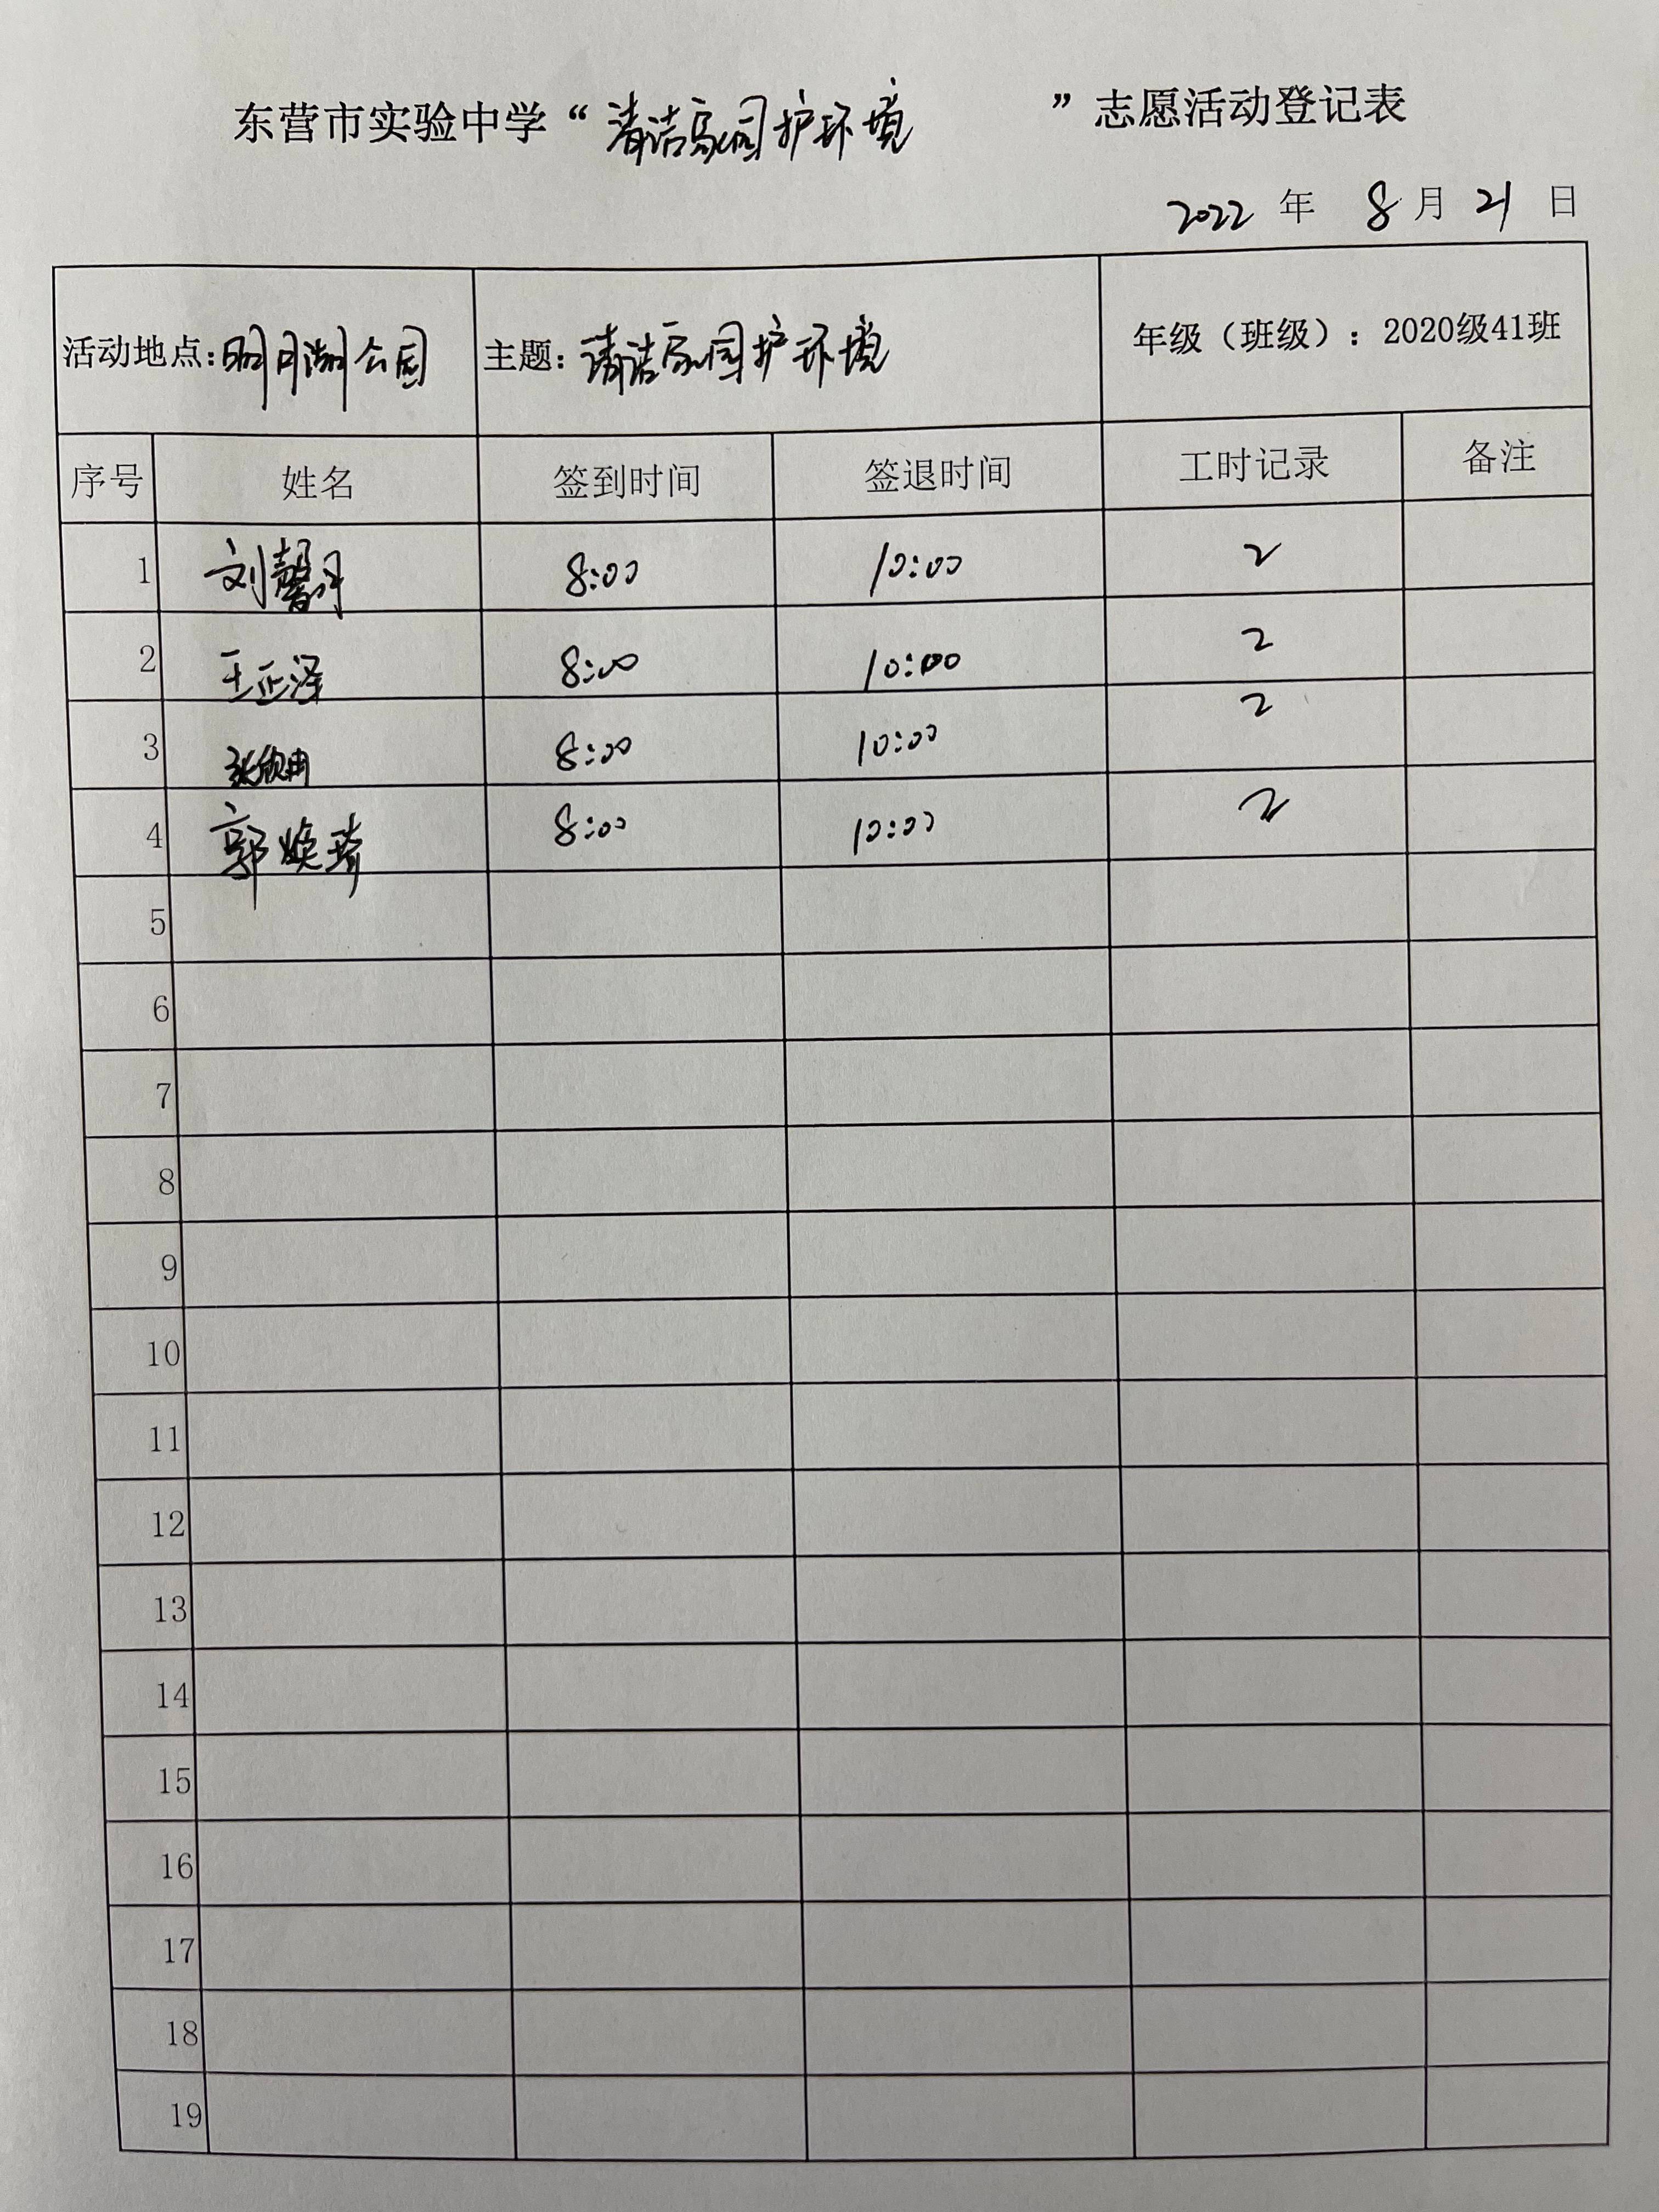 东营市实验中学“清洁家园护环境”志愿活动登记表
2022 年 8 月 21 日
活动地点:明月湖公园 主题:清洁家园护环境 年级（班级）: 2020级41班
序号 姓名 签到时间 签退时间 工时记录 备注
1 刘馨月 8:00 10:00 2
2 王正泽 8:00 10:00 2
3 张欣冉 8:00 10:00 2
4 郭焕琦 8:00 10:00 2
5
6
7
8
9
10
11
12
13
14
15
16
17
18
19